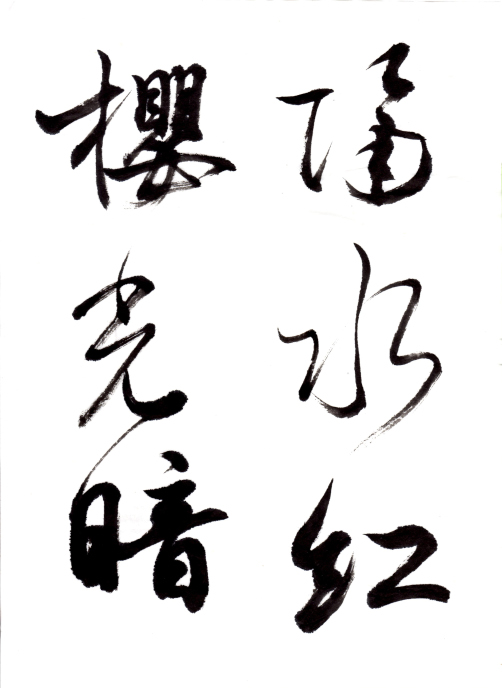 隔水紅
櫻光暗